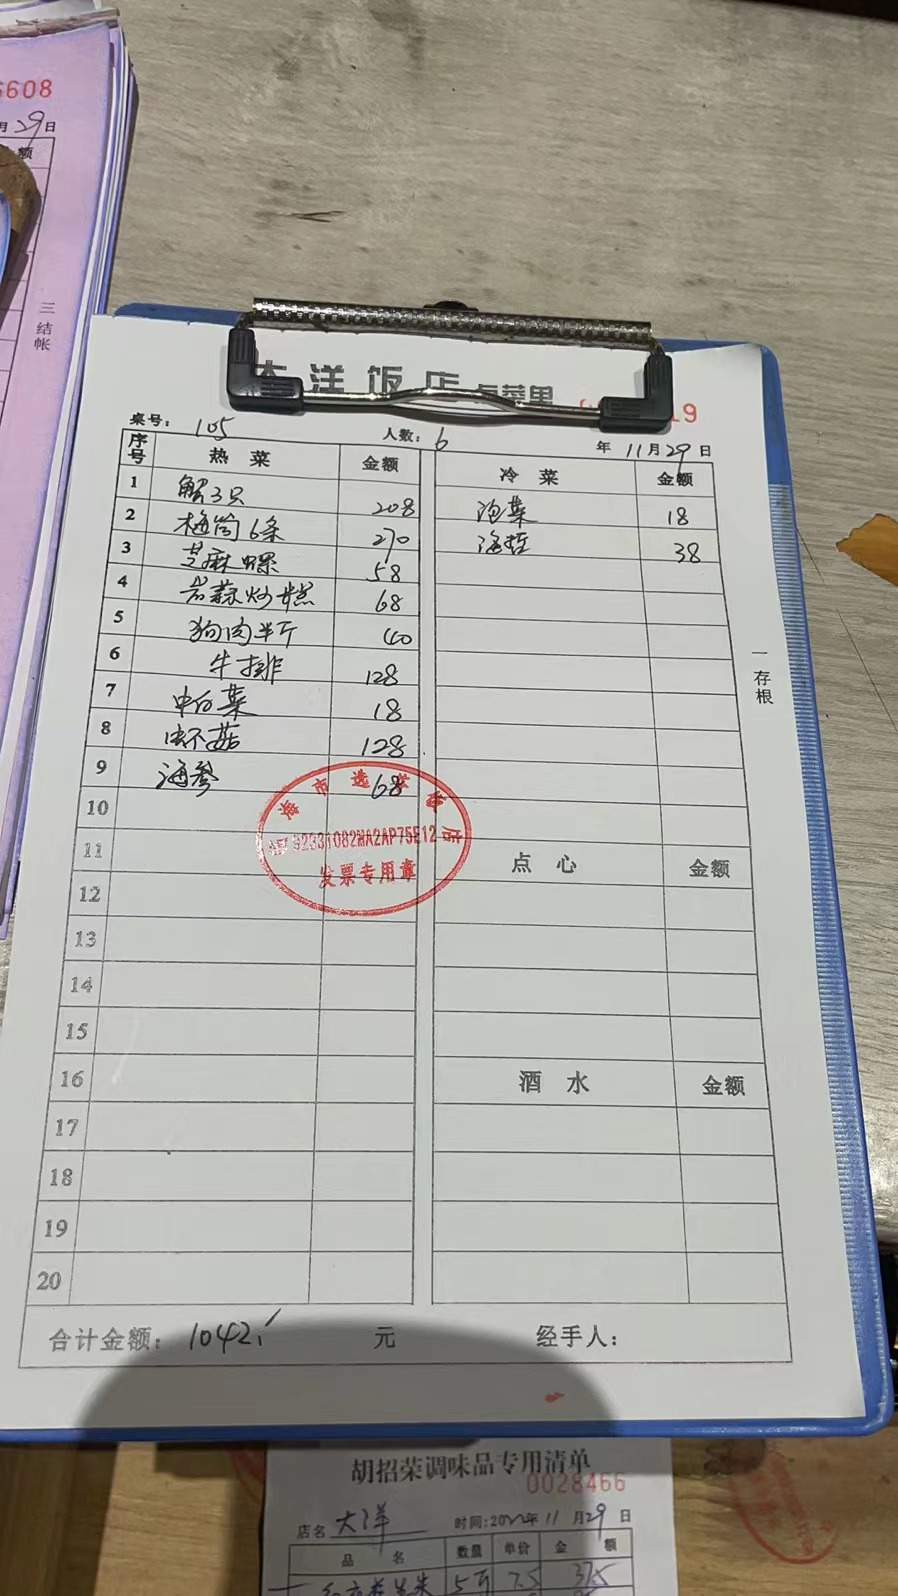 6608
月29日
额
三结帐
大洋饭店点菜单
19
桌号: 105 人数: 6 年 11月29日
序号 热菜 金额 冷菜 金额
1 蟹3只 208 泡菜 18
2 梅筒6条 270 海蜇 38
3 芝麻螺 58
4 岩蒜炒糕 68
5 狗肉半斤 60
6 牛排 128
7 中白菜 18
8 128
9 海参 68
10
11 点心 金额
12
13
14
15
16 酒水 金额
17
18
19
20
合计金额: 1042 元 经手人:
一存根
海市选
92331082MA2AP75E12
发票专用章
胡招荣调味品专用清单
0028466
店名 大洋 时间:2022年11月29日
品名 数量 单价 金额
5斤 7.5 37.5